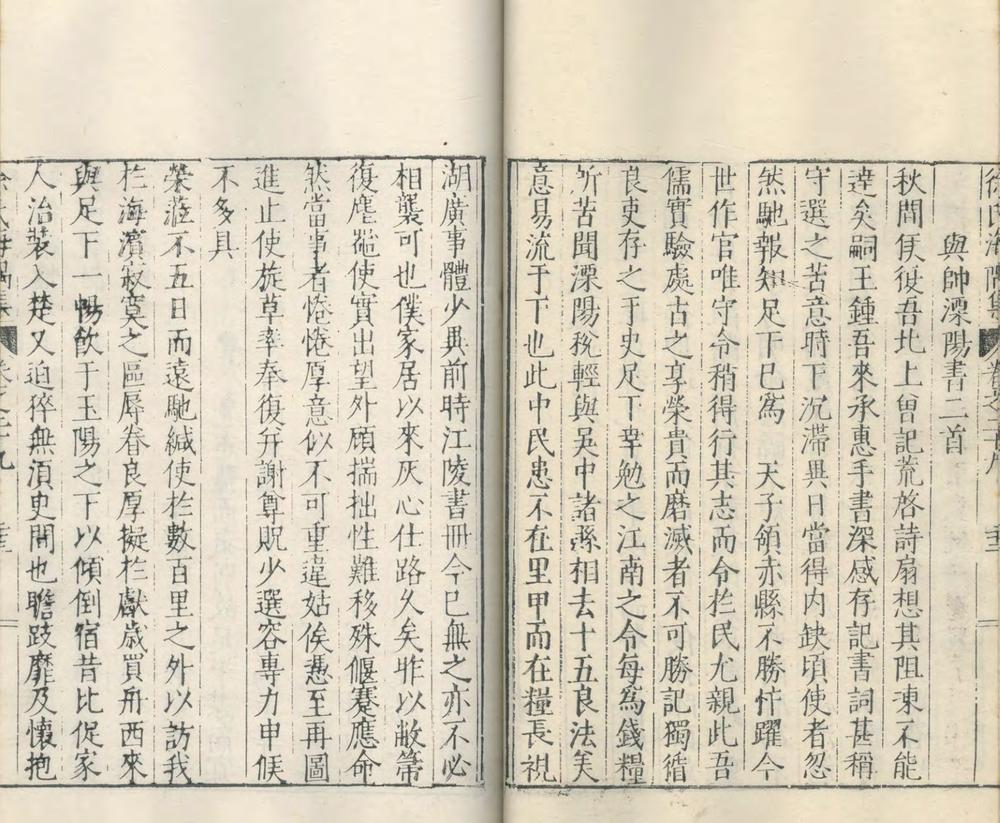 徐氏海隅集
卷之十九
十三
與帥溧陽書二首
秋間使復吾北上曾記荒啓詩扇想其阻凍不能
達矣嗣王鍾吾來承惠手書深感存記書詞甚稱
守選之苦意時下沉滯異日當得内缺頃使者忽
然馳報知足下已爲　天子領赤縣不勝忭躍今
世作官唯守令稍得行其志而令於民尤親此吾
儒實驗處古之享榮貴而磨滅者不可勝記獨循
良吏存之于史足下幸勉之江南之令每爲錢糧
所苦聞溧陽稅輕與吳中諸縣相去十五良法美
意易流于下也此中民患不在里甲而在糧長視
湖廣事體少異前時江陵書冊今已無之亦不必
相襲可也僕家居以來灰心仕路久矣昨以敝箒
復塵菴使實出望外顧揣拙性難移殊偃蹇應命
然當事者惓惓厚意似不可重違姑俟憑至再圖
進止使旋草率奉復并謝尊貺少選容專力申候
不多具
榮蒞不五日而遠馳緘使於數百里之外以訪我
於海濱寂寞之區辱眷良厚擬於獻歲買舟西來
與足下一暢飲于玉陽之下以傾倒宿昔比促家
人治裝入楚又迫猝無須史間也瞻跂靡及懷抱
徐氏海隅集
卷之十九
十三